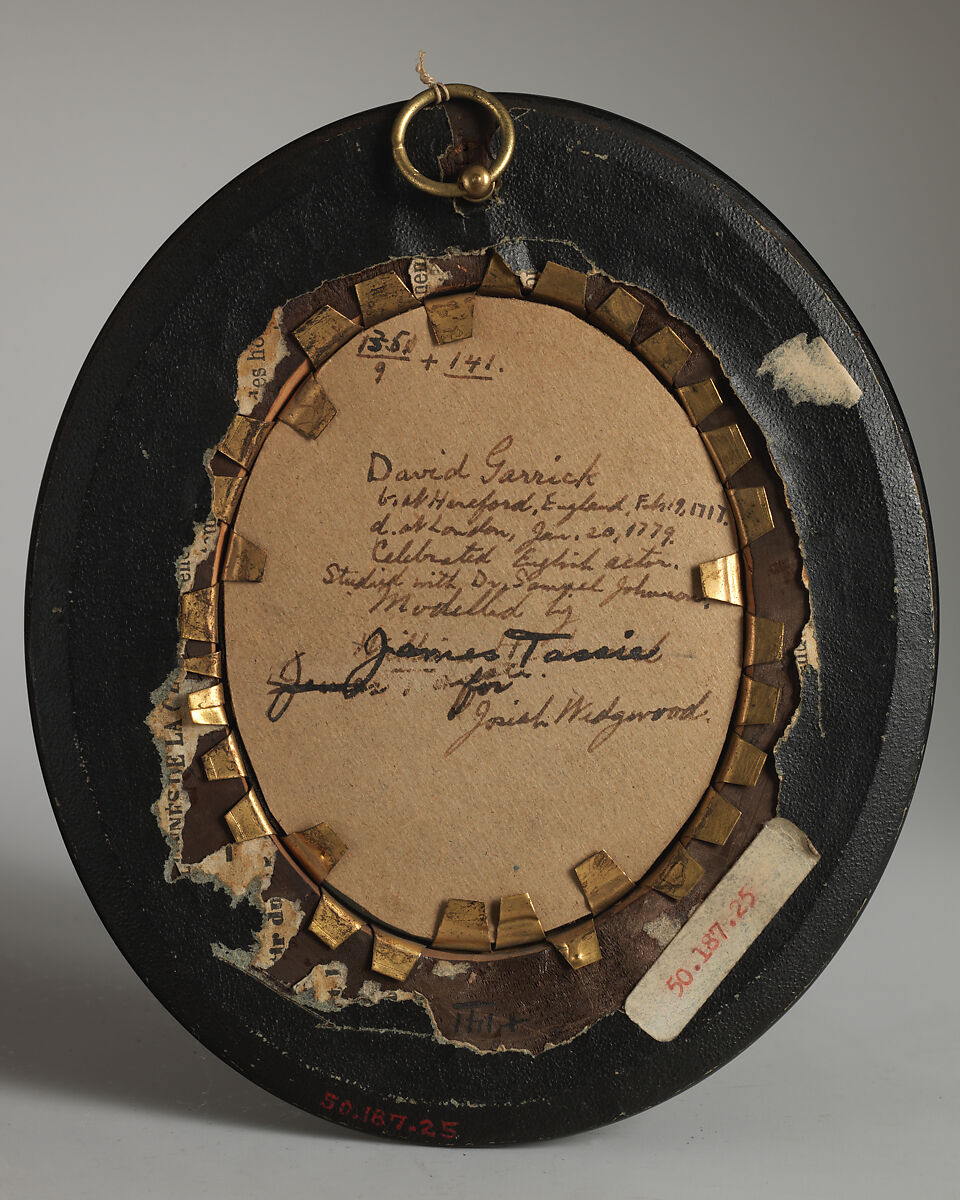 13.61 + 141.
9
David Garrick
b. at Hereford, England, Feb. 19, 1717.
d. at London, Jan. 20, 1779.
Celebrated English actor.
Studied with Dr. Samuel Johnson.
Modelled by
James Tassie
for
Josiah Wedgwood.
es ho
nem
en
NES DE LA C
ir du
50.187.25
141
50.187.25